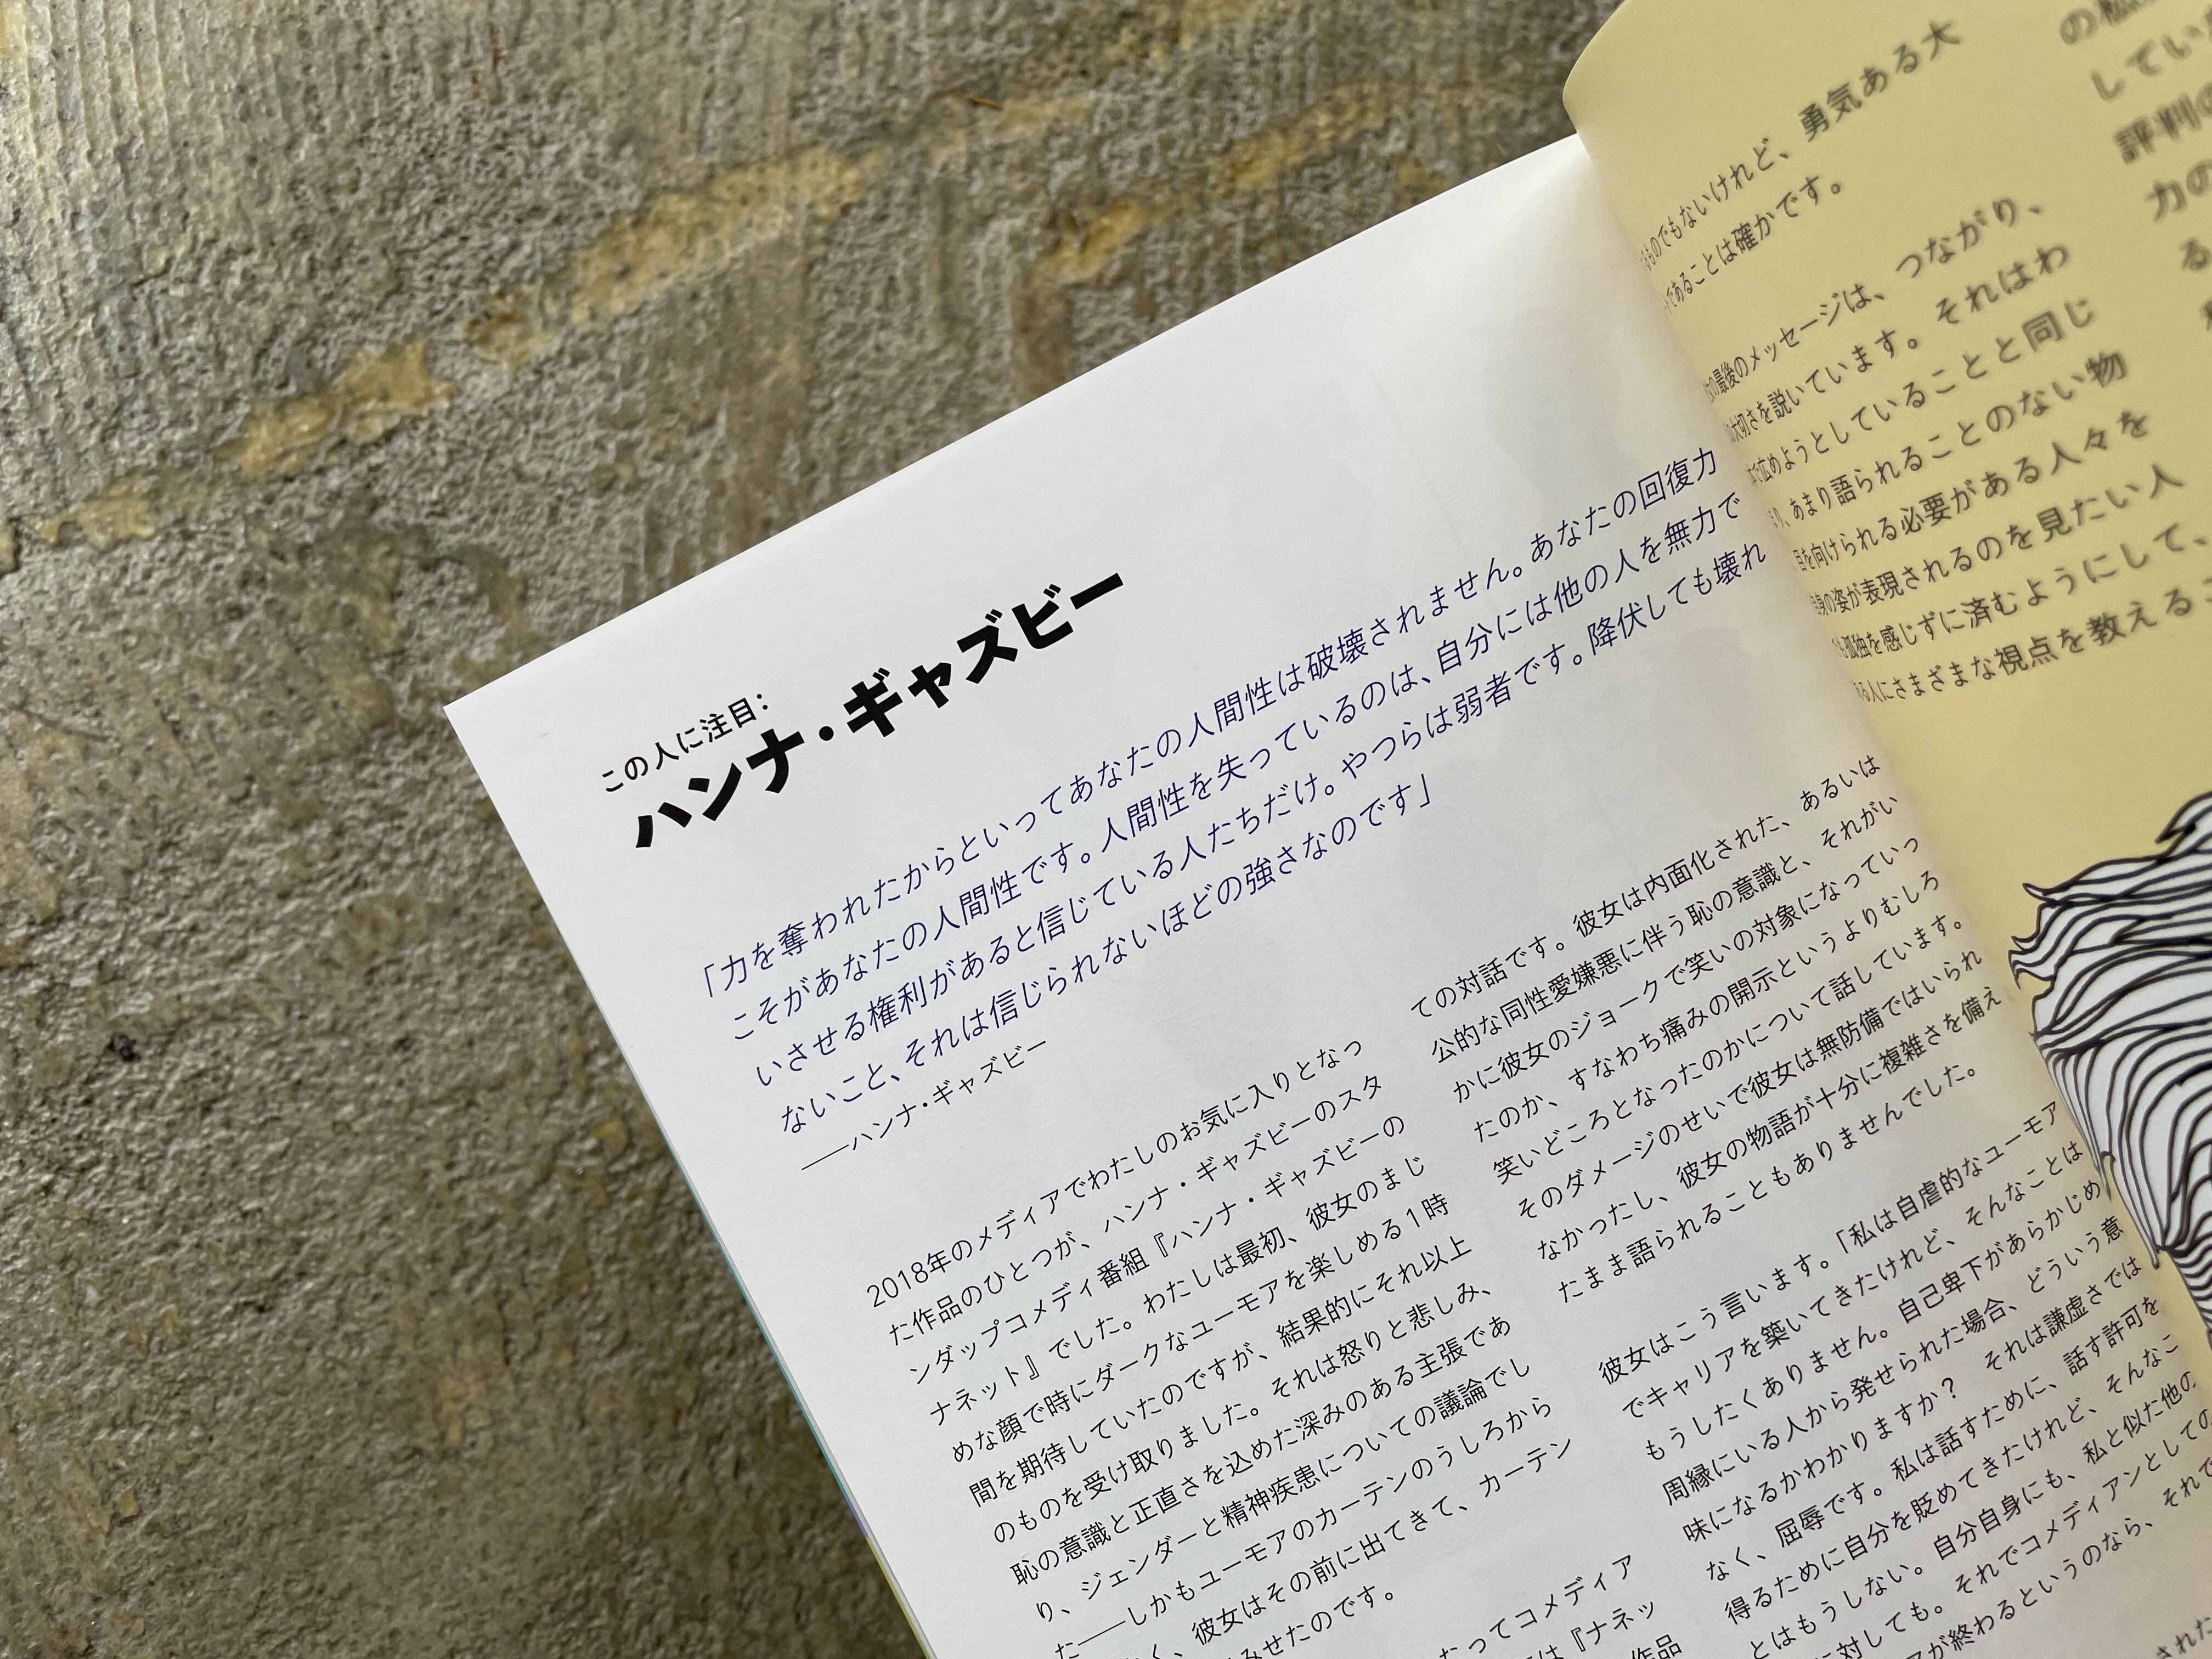 この人に注目：
ハンナ・ギャズビー
「力を奪われたからといってあなたの人間性は破壊されません。あなたの回復力
こそがあなたの人間性です。人間性を失っているのは、自分には他の人を無力で
いさせる権利があると信じている人たちだけ。やつらは弱者です。降伏しても壊れ
ないこと、それは信じられないほどの強さなのです」
──ハンナ・ギャズビー
2018年のメディアでわたしのお気に入りとなっ
た作品のひとつが、ハンナ・ギャズビーのスタ
ンダップコメディ番組『ハンナ・ギャズビーの
ナネット』でした。わたしは最初、彼女のまじ
めな顔で時にダークなユーモアを楽しめる1時
間を期待していたのですが、結果的にそれ以上
のものを受け取りました。それは怒りと悲しみ、
恥の意識と正直さを込めた深みのある主張であ
り、ジェンダーと精神疾患についての議論でし
た──しかもユーモアのカーテンのうしろから
く、彼女はその前に出てきて、カーテン
みせたのです。
たってコメディア
は『ナネッ
作品
ての対話です。彼女は内面化された、あるいは
公的な同性愛嫌悪に伴う恥の意識と、それがい
かに彼女のジョークで笑いの対象になっていっ
たのか、すなわち痛みの開示というよりむしろ
笑いどころとなったのかについて話しています。
そのダメージのせいで彼女は無防備ではいられ
なかったし、彼女の物語が十分に複雑さを備え
たまま語られることもありませんでした。
彼女はこう言います。「私は自虐的なユーモア
でキャリアを築いてきたけれど、そんなことは
もうしたくありません。自己卑下があらかじめ
周縁にいる人から発せられた場合、どういう意
味になるかわかりますか？　それは謙虚さでは
なく、屈辱です。私は話すために、話す許可を
得るために自分を貶めてきたけれど、そんなこ
とはもうしない。自分自身にも、私と似た他の
に対しても。それでコメディアンとしての
アが終わるというのなら、それで
された
ものでもないけれど、勇気ある大
であることは確かです。
の最後のメッセージは、つながり、
大切さを説いています。それはわ
で広めようとしていることと同じ
り、あまり語られることのない物
目を向けられる必要がある人々を
身の姿が表現されるのを見たい人
も孤独を感じずに済むようにして、
る人にさまざまな視点を教えるこ
してい
評判の
力の
る